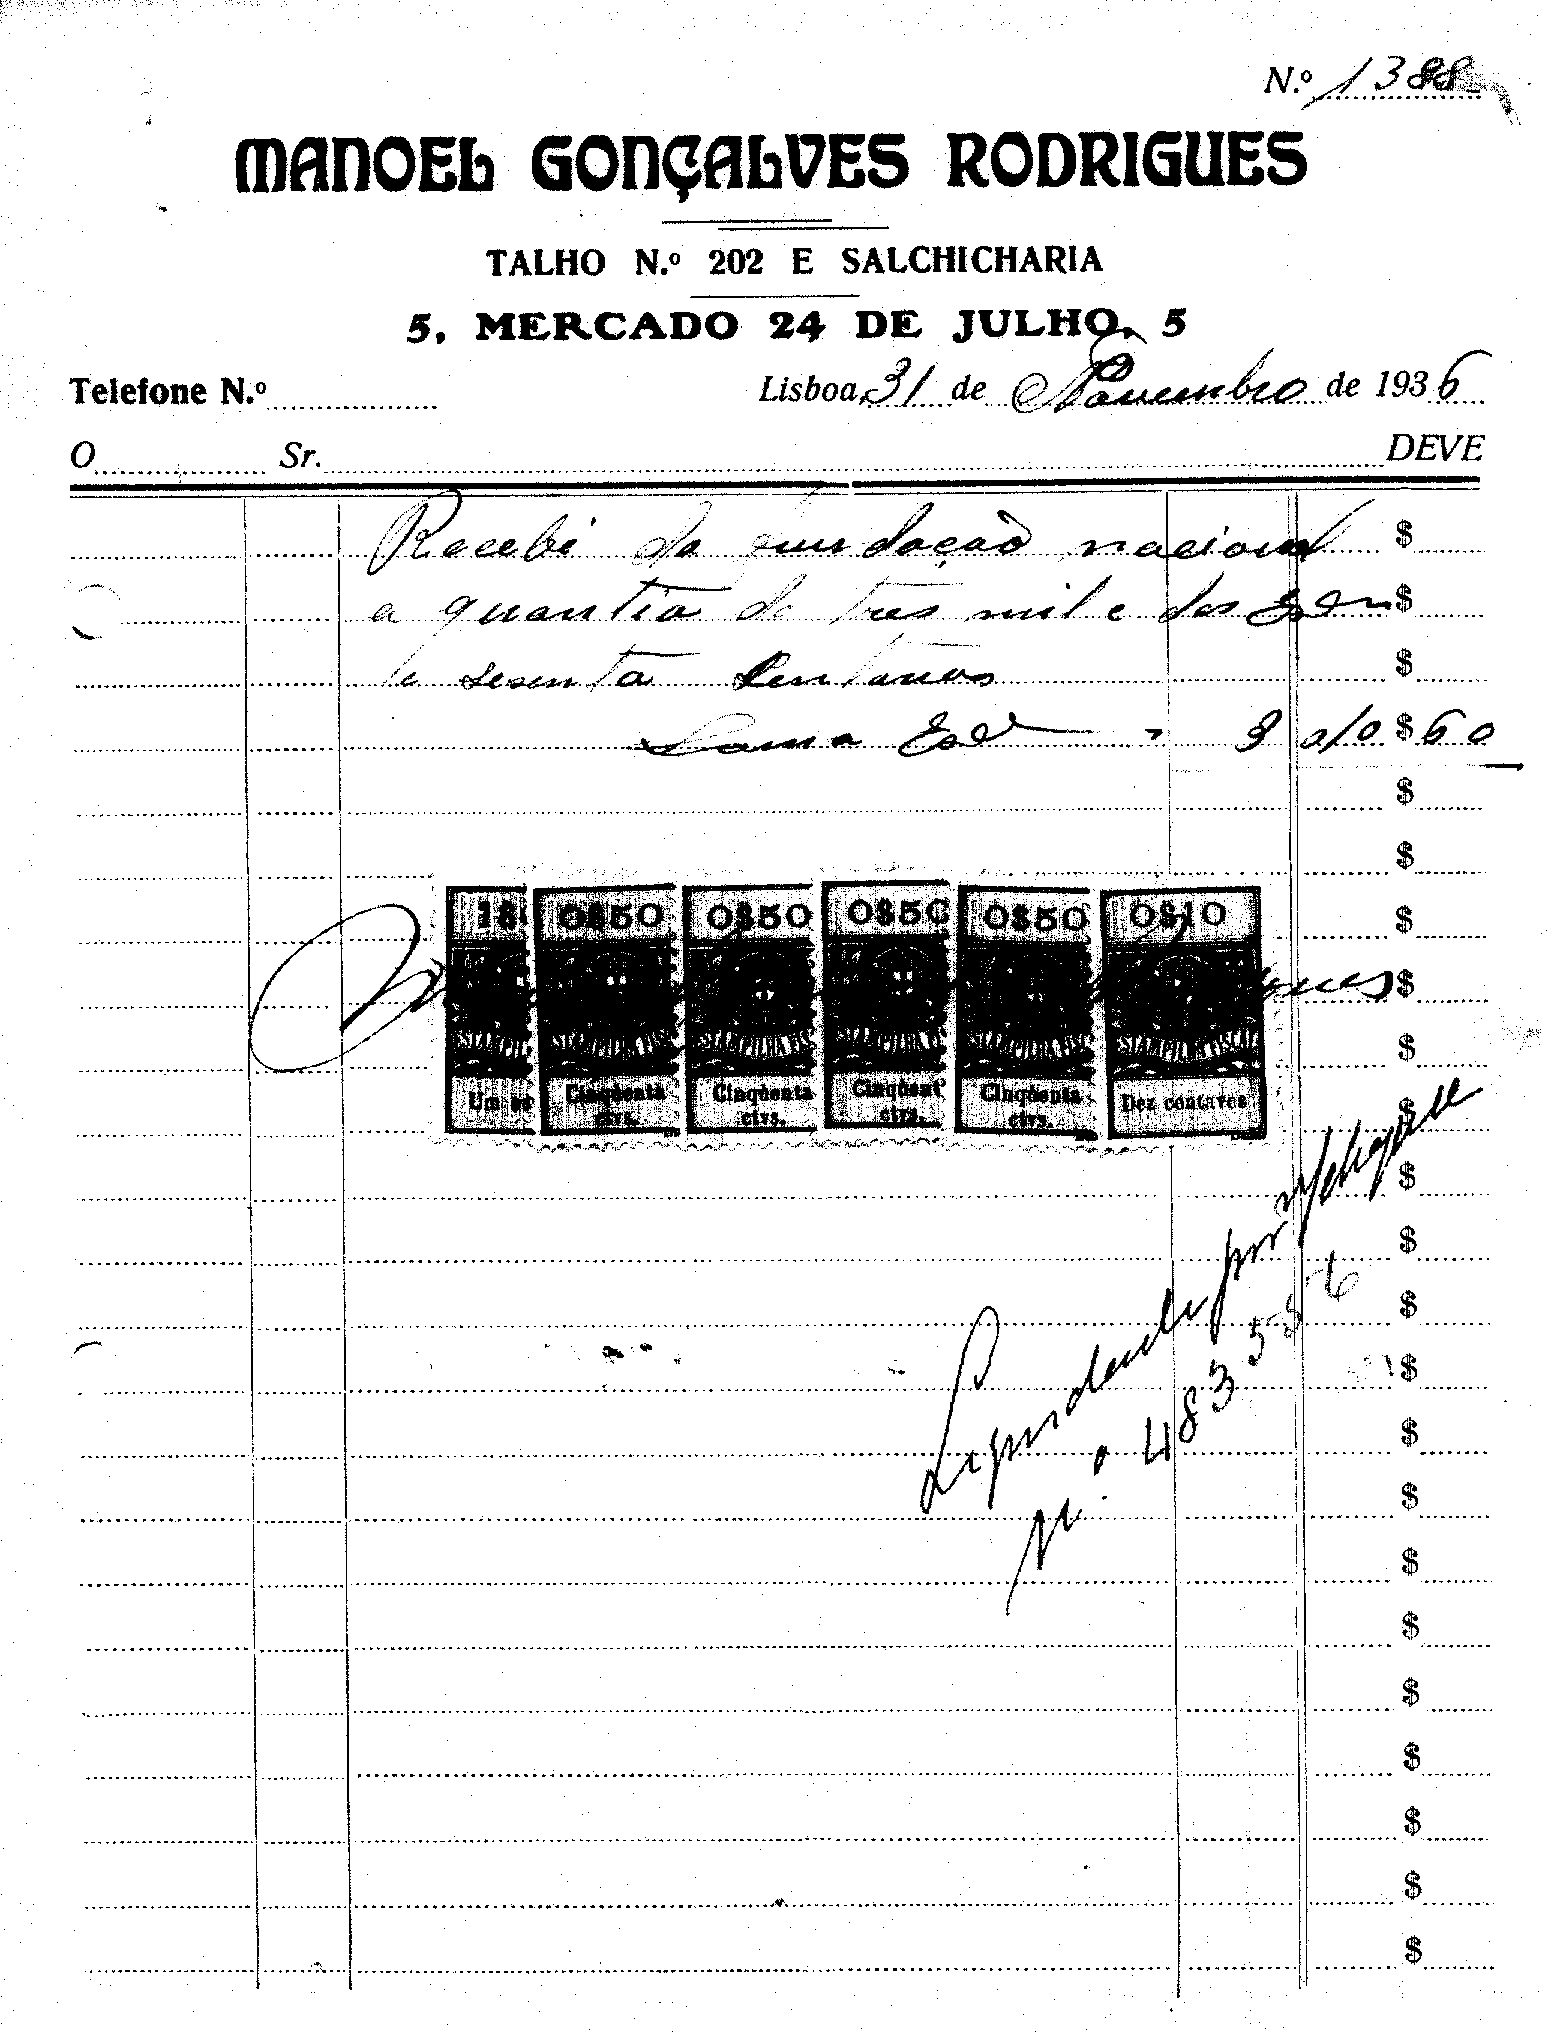 N.º 1388
MANOEL GONÇALVES RODRIGUES
TALHO N.º 202 E SALCHICHARIA
5, MERCADO 24 DE JULHO, 5
Telefone N.º
Lisboa, 31 de Novembro de 1936
O Sr. DEVE
Recebi da fundação nacional $
a quantia de tres mil e des Esc $
e sesenta Centavos $
Soma Esc 3 010 $ 60
$
$
0$50 0$50 0$50 0$50 0$10 $
$
ESTAMPILHA FISCAL $
Um Cinqüenta Cinqüenta Cinqüenta Cinqüenta Dez centavos $
ctvs. ctvs. ctvs. ctvs.
$
$
$
$
$
$
$
$
$
$
$
$
$
por
N.º 483556